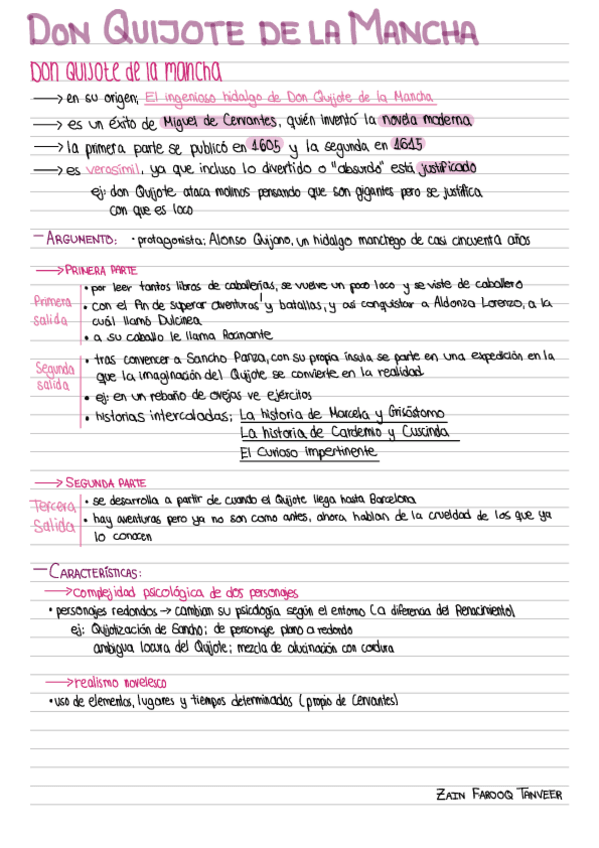 DON QUIJOTE DE LA MANCHA
Don Quijote de la mancha
→ en su origen; El ingenioso hidalgo de Don Quijote de la Mancha
→ es un éxito de Miguel de Cervantes, quién inventó la novela moderna
→ la primera parte se publicó en 1605 y la segunda en 1615
→ es verosímil, ya que incluso lo divertido o "absurdo" está justificado
ej: don Quijote ataca molinos pensando que son gigantes pero se justifica
con que es loco
- ARGUMENTO: · protagonista: Alonso Quijano, un hidalgo manchego de casi cincuenta años
→ PRIMERA PARTE
Primera salida
• por leer tantos libros de caballerías, se vuelve un poco loco y se viste de caballero
• con el fin de superar aventuras y batallas, y así conquistar a Aldonza Lorenzo, a la
cuál llamó Dulcinea
• a su caballo le llama Rocinante
Segunda salida
• tras convencer a Sancho Panza, con su propia ínsula se parte en una expedición en la
que la imaginación del Quijote se convierte en la realidad
• ej: en un rebaño de ovejas ve ejércitos
• historias intercaladas; La historia de Marcela y Grisóstomo
La historia de Cardenio y Luscinda
El curioso impertinente
→ SEGUNDA PARTE
Tercera Salida
• se desarrolla a partir de cuando el Quijote llega hasta Barcelona
• hay aventuras pero ya no son como antes, ahora hablan de la crueldad de los que ya
lo conocen
- CARACTERÍSTICAS:
→ complejidad psicológica de dos personajes
• personajes redondos → cambian su psicología según el entorno (a diferencia del Renacimiento)
ej: Quijotización de Sancho; de personaje plano a redondo
ambigua locura del Quijote; mezcla de alucinación con cordura
→ realismo novelesco
• uso de elementos, lugares y tiempos determinados (propio de Cervantes)
ZAIN FAROOQ TANVEER